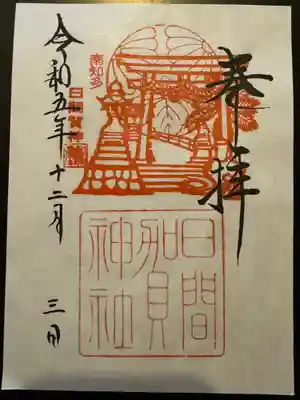 奉拝
南知多
日間賀島
日間
賀
神社
令和五年十二月三日